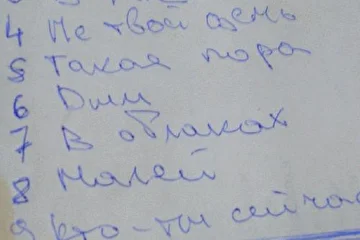 4 Не твой день
5 Такая пора
6 Дым
7 В облаках
8 Налей
9 Кто-ты сейчас